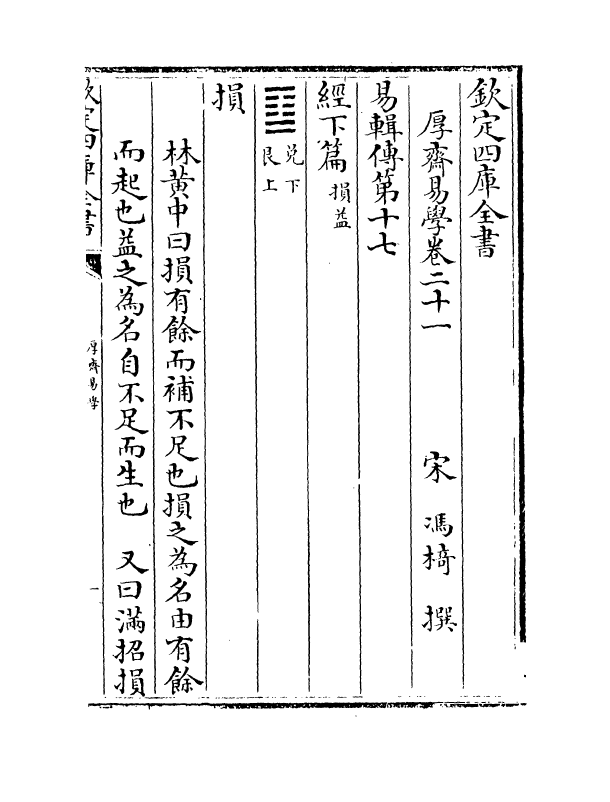 欽定四庫全書
厚齋易學卷二十一　宋　馮椅　撰
易輯傳第十七
經下篇 損益
䷨ 兌下
艮上
損
林黃中曰損有餘而補不足也損之為名由有餘
而起也益之為名自不足而生也　又曰滿招損
欽定四庫全書
厚齋易學
一